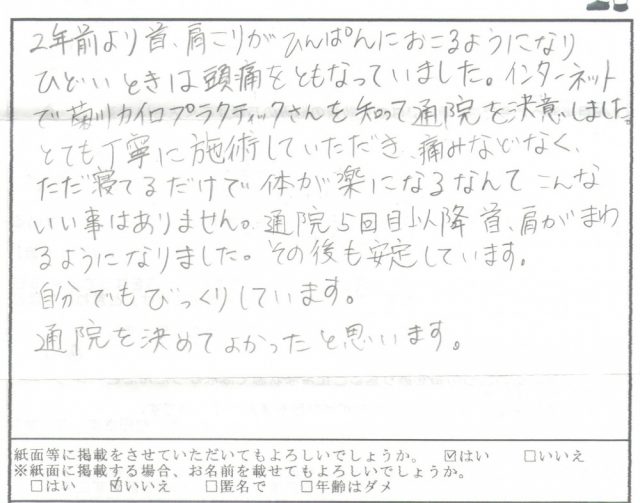 2年前より首、肩こりがひんぱんにおこるようになり
ひどいときは頭痛をともなっていました。インターネット
で菊川カイロプラクティックさんを知って通院を決意しました。
とても丁寧に施術していただき、痛みなどなく、
ただ寝てるだけで体が楽になるなんてこんな
いい事はありません。通院5回目以降首、肩がまわ
るようになりました。その後も安定しています。
自分でもびっくりしています。
通院を決めてよかったと思います。
紙面等に掲載をさせていただいてもよろしいでしょうか。 ☑はい □いいえ
※紙面に掲載する場合、お名前を載せてもよろしいでしょうか。
□はい ☑いいえ □匿名で □年齢はダメ